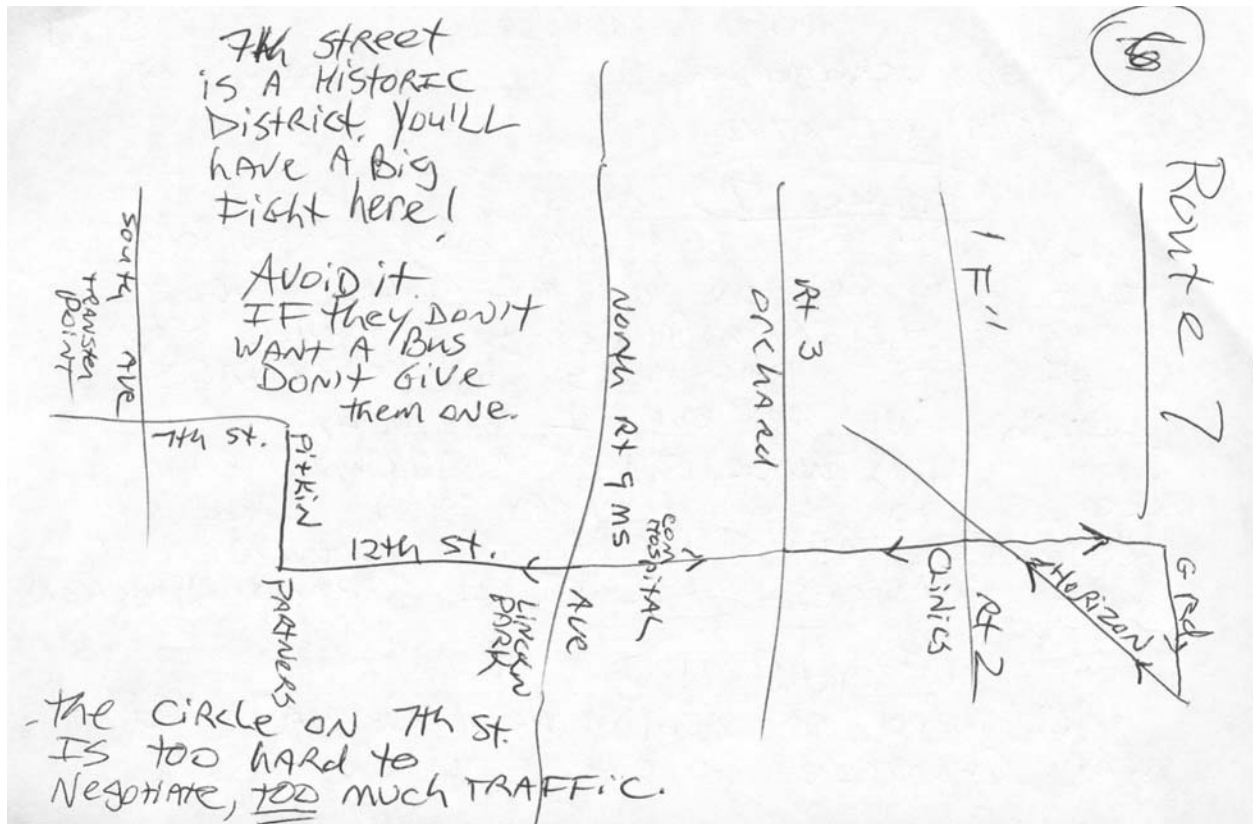 7th street
is A HISTORIC
District. You'LL
hAve A Big
Fight here!
AVOiD it.
IF they DON't
WANT A BUS
DON't GIVE
them one.
Route 7
South Ave
TRANSfer
POINT
7th st.
Pitkin
12th St.
PARTNERS
LINCOLN
PARK
North Rt 9
AVE
Hospital
Rt 3
orchard
"F"
Rt 2
Clinics
HORIZON
G Rd.
-the CIRcle ON 7th St.
IS too hARd to
Negotiate, TOO much TRAFFIC.